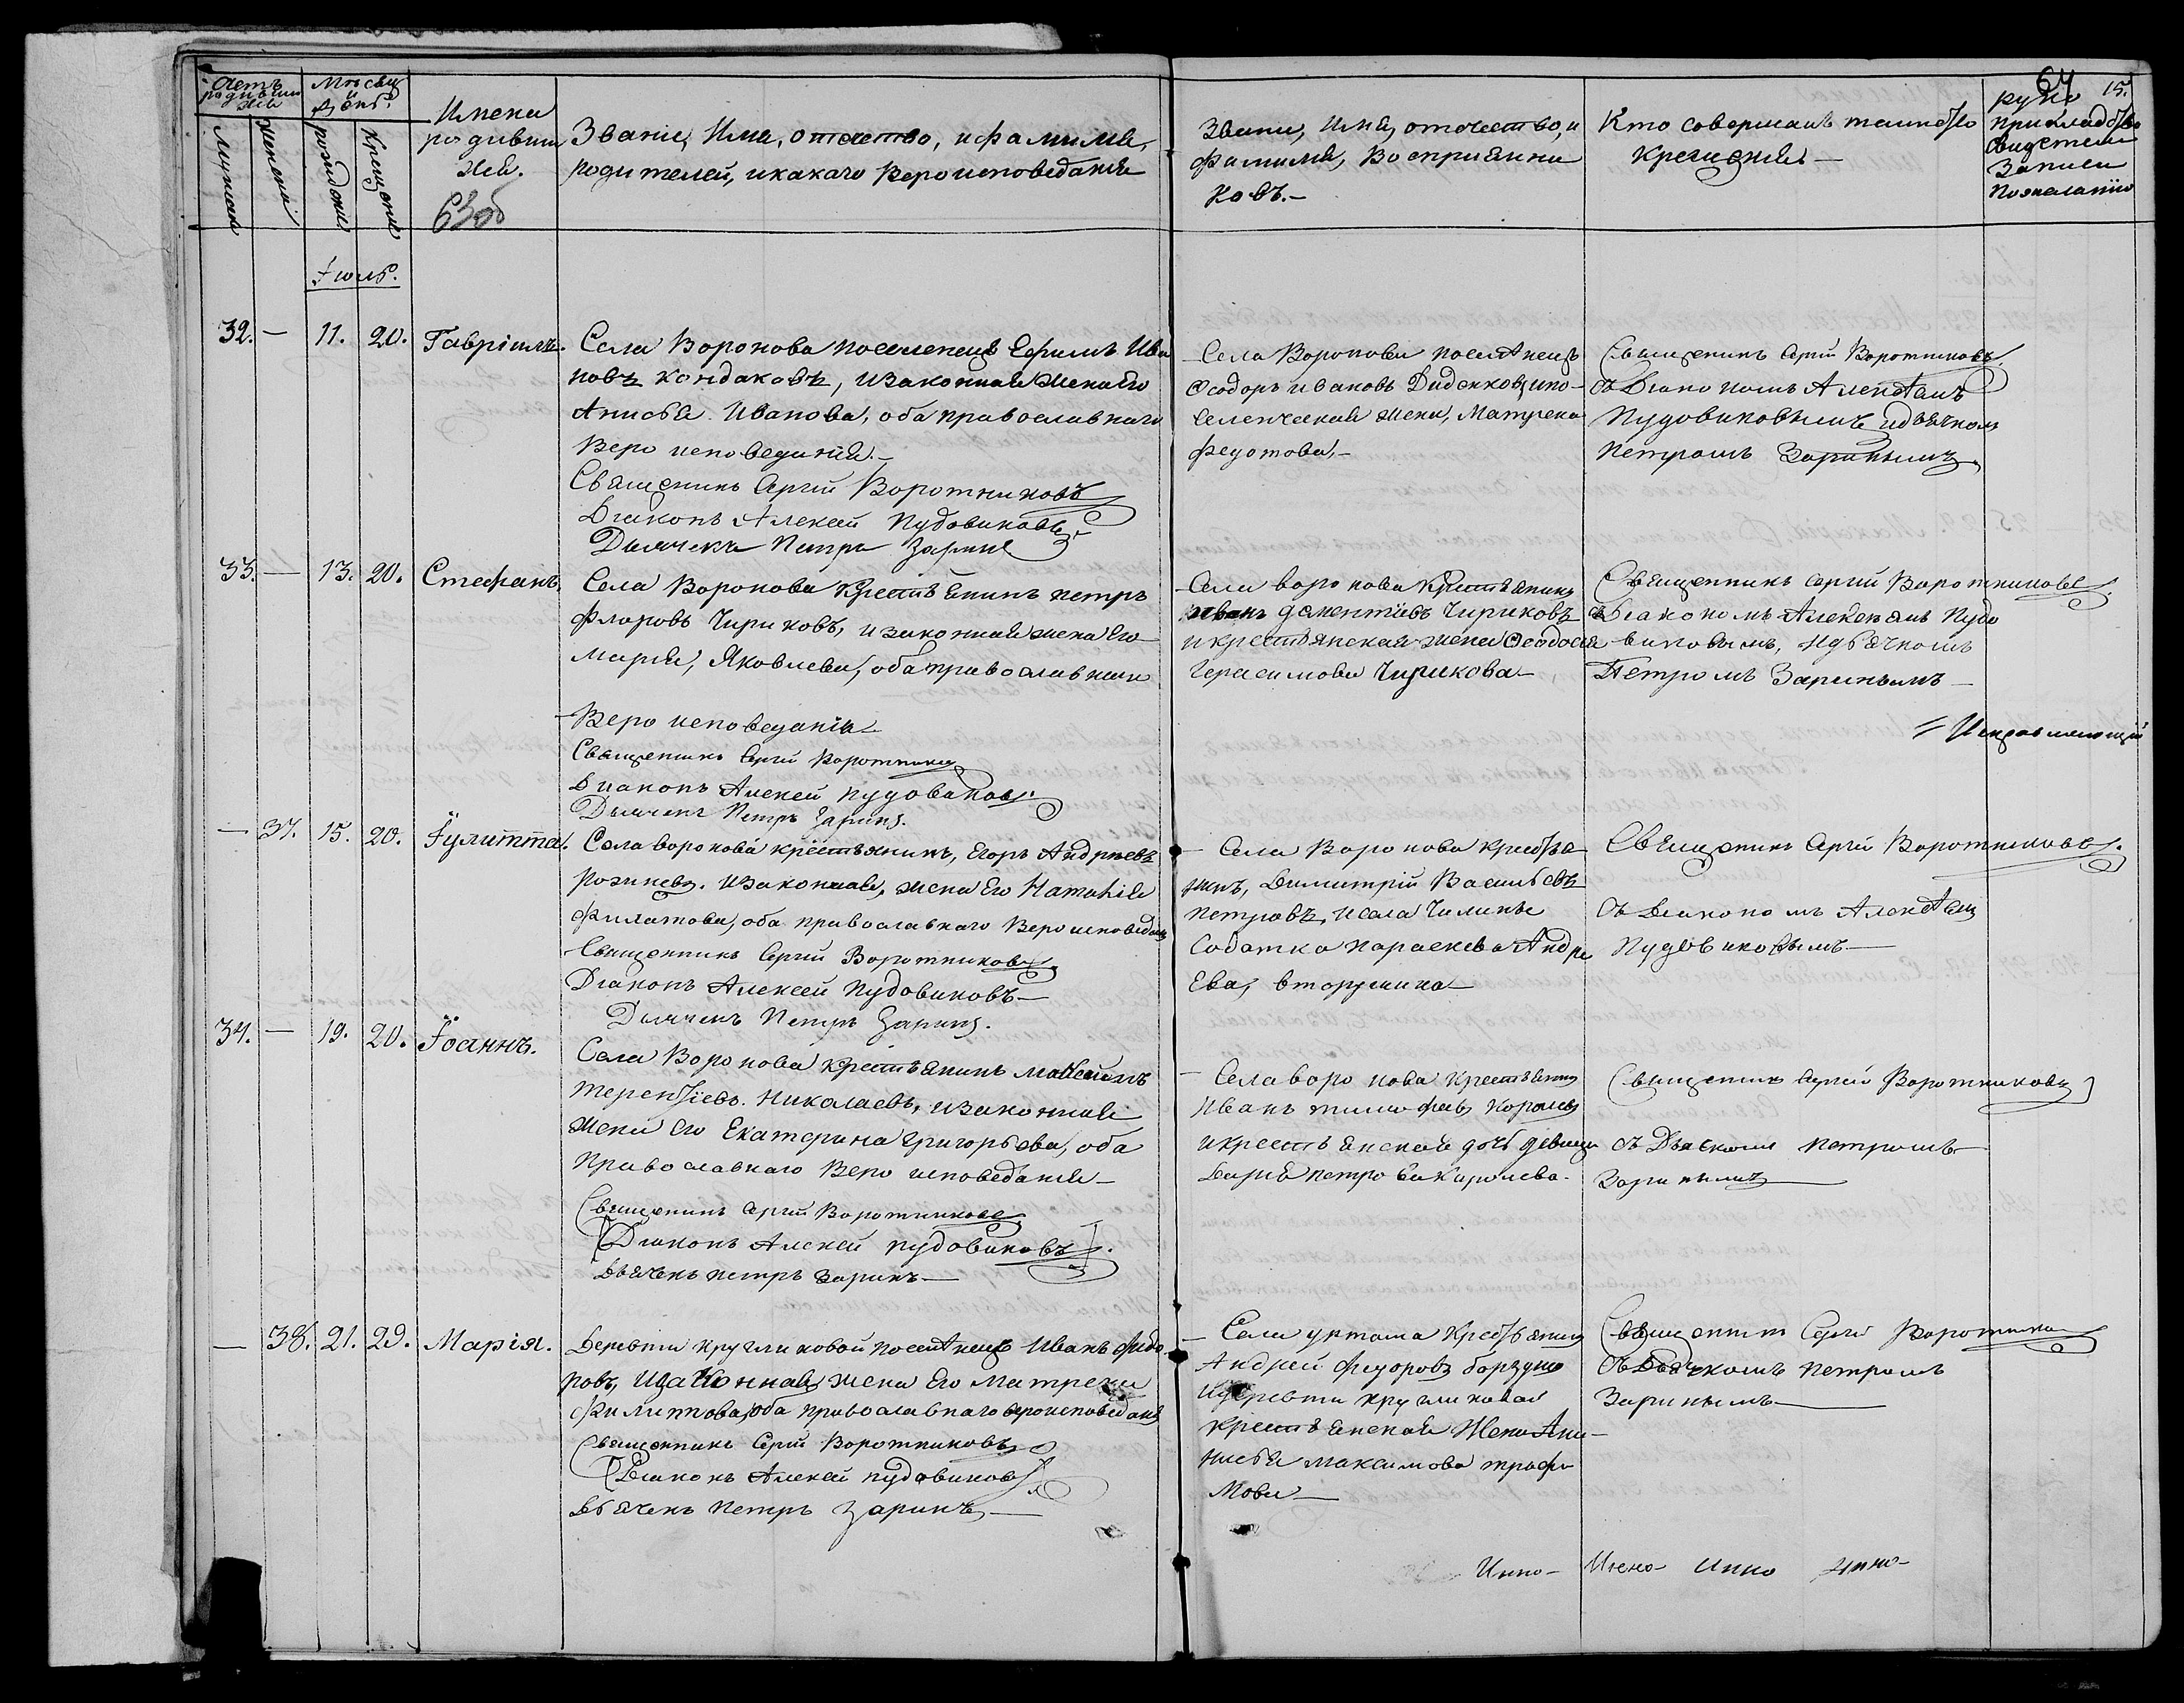 64
15.
Счетъ родившихся
Мѣсяцъ и день.
Мужеска
Женска
рожденія
Крещенія
Имена
родивших
ся.
63об
Званіе, Имя, отечество, и фамилія,
родителей, и какаго Вероисповеданія
Званіе, имя, отечество, и
фамилія, Восприемни
ковъ.–
Кто совершалъ таинство
крещенія –
руко
прикладство
свидетелей
Записи
по желанію
Іюль.
32. – 11. 20. Гавріилъ.
Села Воронова поселенецъ Ефимъ Ива
новъ Кондаковъ, и законная жена Его
Анисья Иванова, оба православнаго
Веро исповеданія.–
Священникъ Сергій Воротниковъ
Діаконъ Алексей Пудовиковъ.
Дьячекъ Петръ Заринъ
Села Воронова поселенецъ
Феодоръ Ивановъ Диденковъ и по-
селенческая жена, Матрена
Федотова,–
Священникъ Сергій Воротниковъ
съ Діакономъ Алексеемъ
Пудовиковымъ и дьячкомъ
Петромъ Заринымъ.
33. – 13. 20. Стефанъ.
Села Воронова Крестьянинъ петръ
Флоровъ Чириковъ, и законная жена Его
Марія, Яковлева, оба православнаго
Веро исповеданія
Священникъ Сергій Воротниковъ
Діаконъ Алексей Пудовиковъ.
Дьячекъ Петръ Заринъ.
Села Воронова Крестьянинъ
Иванъ дементіевъ Чириковъ
и крестьянская жена Феодосья
Герасимова Чирикова –
Священникъ Сергій Воротниковъ.
съ Діакономъ Алексеемъ Пудо
виковымъ, и дьячкомъ
Петромъ Заринымъ –
Исправляющій
– 37. 15. 20. Іулитта.
Села воронова крестьянинъ, Егоръ Андреевъ
и законная, жена Его Наталія
Филатова, оба православнаго Вероисповедан
Священникъ Сергій Воротниковъ.
Діаконъ Алексей Пудовиковъ –
Дьячекъ Петръ Заринъ.
– Села Воронова кресть
нинъ, Димитрій Васильевъ
петровъ, и села Чилины
Солдатка параскева Андре
Ева,
Священникъ Сергій Воротниковъ.
съ Діакономъ Алексеемъ
Пудовиковымъ –
34. – 19. 20. Іоаннъ.
Села Воронова крестьянинъ
Терентіевъ. Николаевъ, и законная
жена его Екатерина Григорьева, оба
Православнаго Веро исповеданія –
Священникъ Сергій Воротниковъ
Діаконъ Алексей пудовиковъ.
Дьячекъ петръ Заринъ –
– Села Воронова Крестьянинъ
Иванъ тимофеевъ Королевъ
и крестьянская дочь девица
Дарья петрова Каролева.
Священникъ Сергей Воротниковъ
съ Дьячкомъ петромъ
Заринымъ –
– 38. 21. 29. Марія.
Деревни кругликовой поселенецъ Иванъ Федо
ровъ, и законная жена Его Матрена
Филиппова, оба православнаго вероисповедан
Священникъ Сергій Воротниковъ
Діаконъ Алексей пудовиковъ
Дьячекъ петръ Заринъ –
– Села уртама Крестьянинъ
Андрей Федоровъ
и деревни кругликовой
крестьянская Жена Ани-
нисья Максимова трофи
мова –
Священникъ Сергей Воротников
съ Дьячкомъ петромъ
Заринымъ –